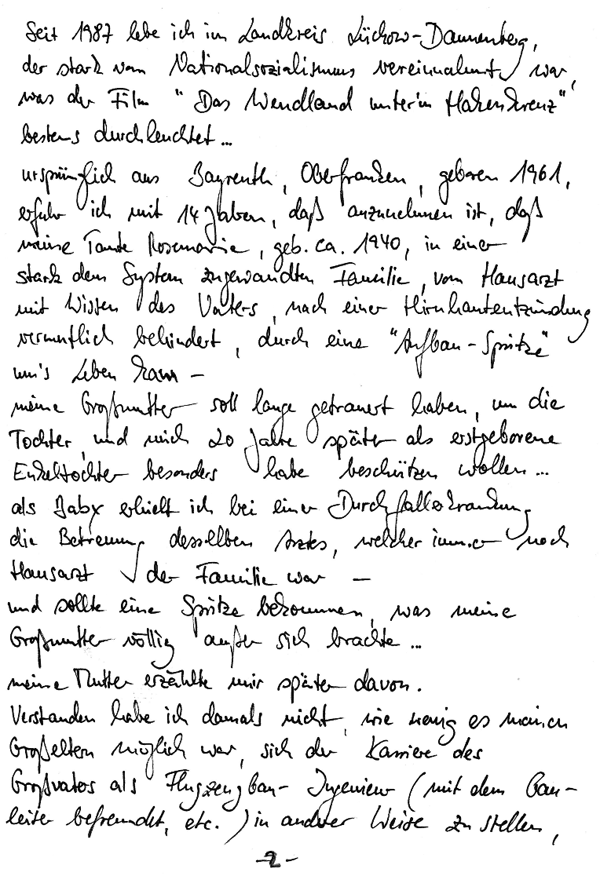 Seit 1987 lebe ich im Landkreis Lüchow-Dannenberg,
der stark vom Nationalsozialismus vereinnahmt war,
was der Film "Das Wendland unter'm Hakenkreuz"
bestens durchleuchtet...
ursprünglich aus Bayreuth, Oberfranken, geboren 1961,
erfuhr ich mit 14 Jahren, daß anzunehmen ist, daß
meine Tante Rosemarie, geb. ca. 1940, in einer
stark dem System zugewandten Familie, vom Hausarzt
mit Wissen des Vaters, nach einer Hirnhautentzündung
vermutlich behindert, durch eine "Aufbau-Spritze"
um's Leben kam –
meine Großmutter soll lange getrauert haben, um die
Tochter, und mich 20 Jahre später als erstgeborene
Enkeltochter besonders habe beschützen wollen...
als Baby erhielt ich bei einer Durchfallerkrankung
die Betreuung desselben Arztes, welcher immer noch
Hausarzt der Familie war –
und sollte eine Spritze bekommen, was meine
Großmutter völlig außer sich brachte...
meine Mutter erzählte mir später davon.
Verstanden habe ich damals nicht, wie wenig es meinen
Großeltern möglich war, sich der Karriere des
Großvaters als Flugzeugbau-Ingenieur (mit dem Bau-
leiter befreundet, etc.) in anderer Weise zu stellen,
-2-